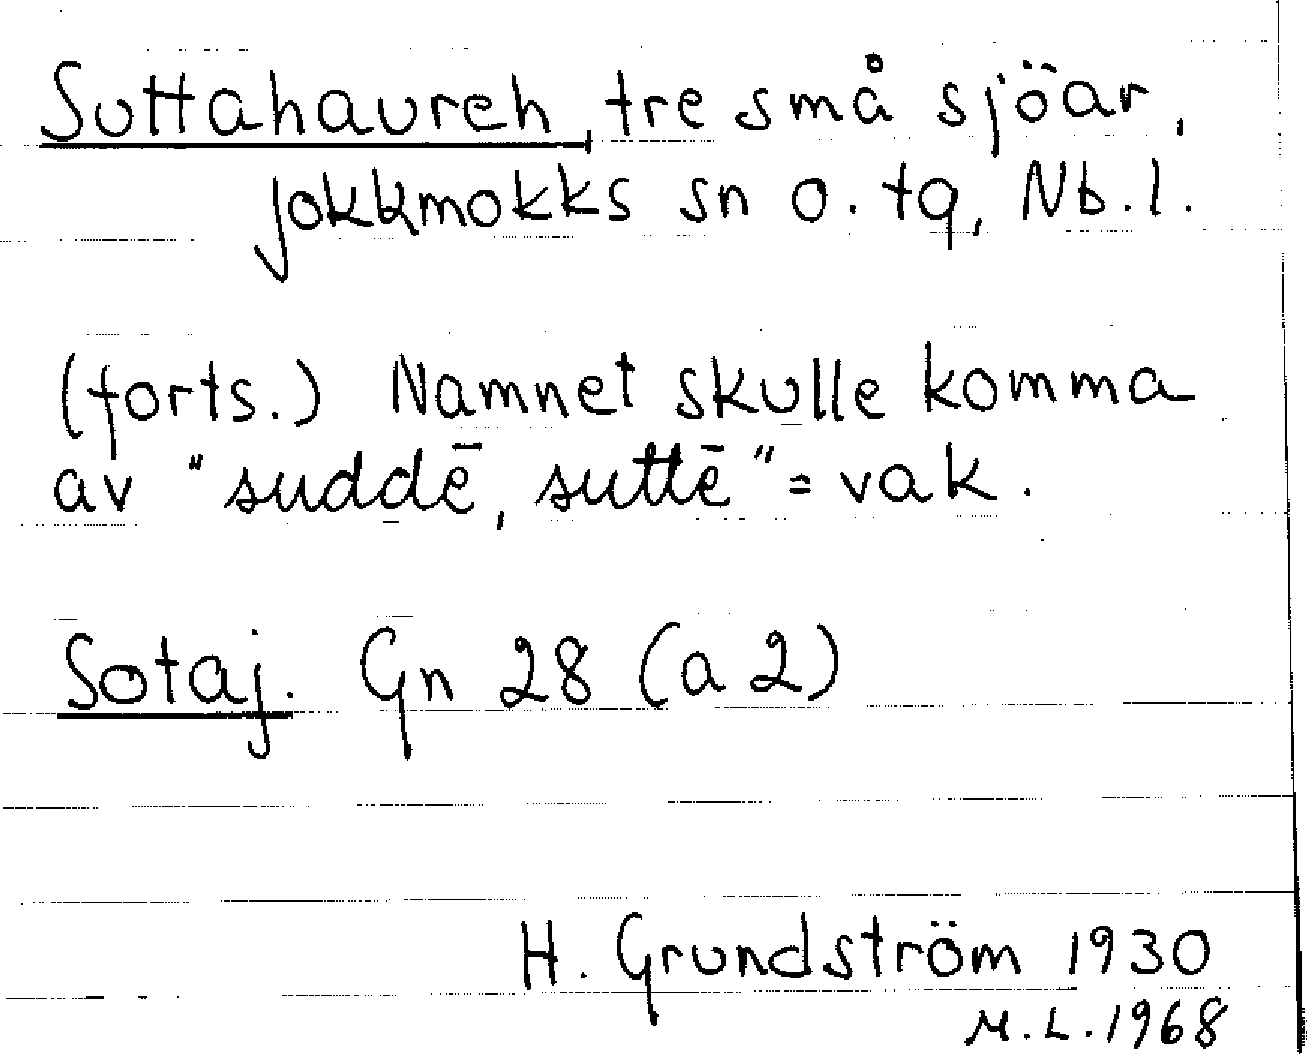 Suttahaureh, tre små sjöar,
Jokkmokks sn o. tg, Nb. l.
(forts.) Namnet skulle komma
av "suddē, suttē" = vak.
Sotaj. Gn 28 (a 2)
H. Grundström 1930
M. L. 1968